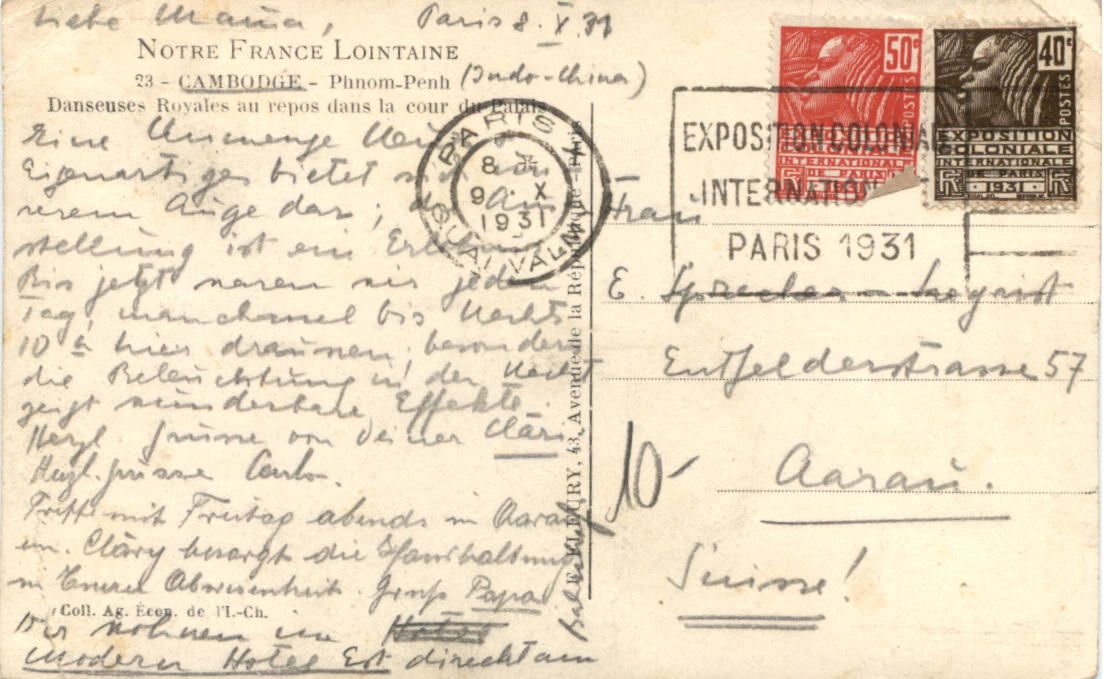 Liebe Mama, Paris 8. X. 31
NOTRE FRANCE LOINTAINE
23 - CAMBODGE - Phnom-Penh (Indo-China)
Danseuses Royales au repos dans la cour du Palais
Eine Unmenge Neues
Eigenartiges bietet sich un
serem Auge dar; die Aus
stellung ist ein Erlebnis
Bis jetzt waren wir jeden
Tag, manchmal bis Nachts
10 h hier draussen, besonders
die Beleuchtung in der Nacht
zeigt wunderbare Effekte.
Herzl. Grüsse von Deiner Cläri.
Herzl. Grüsse
mit Freitag abends in Aarau
ein. Cläry besorgt die Haushaltung
in Eurer Abwesenheit. Gruß Papa
Coll. Ag. Écon. de l'I.-Ch.
Wir wohnen im Hotel
Moderne Hotel Est direkt am
FLEURY, 43, Avenue de la République - Paris
PARIS
8 H
9 . X
1931
QUAI VALMY
EXPOSITION COLONIALE
INTERNATION
PARIS 1931
50c
INTERNATIONALE
DE PARIS
40c
POSTES
EXPOSITION
COLONIALE
INTERNATIONALE
DE PARIS
1931
Frau
E. Sprecher-Siegrist
Entfelderstrasse 57
Aarau.
Suisse!
10-